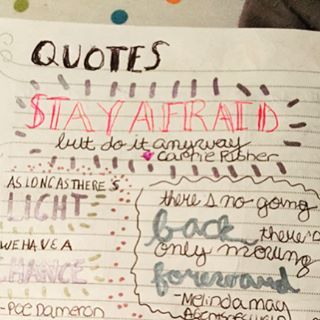 QUOTES
STAY AFRAID
but do it anyway
Carrie Fisher
AS LONG AS THERE'S
LIGHT
WE HAVE A
CHANCE
-Poe Dameron
there's no going
back there's
only moving
foreward
-Melinda may